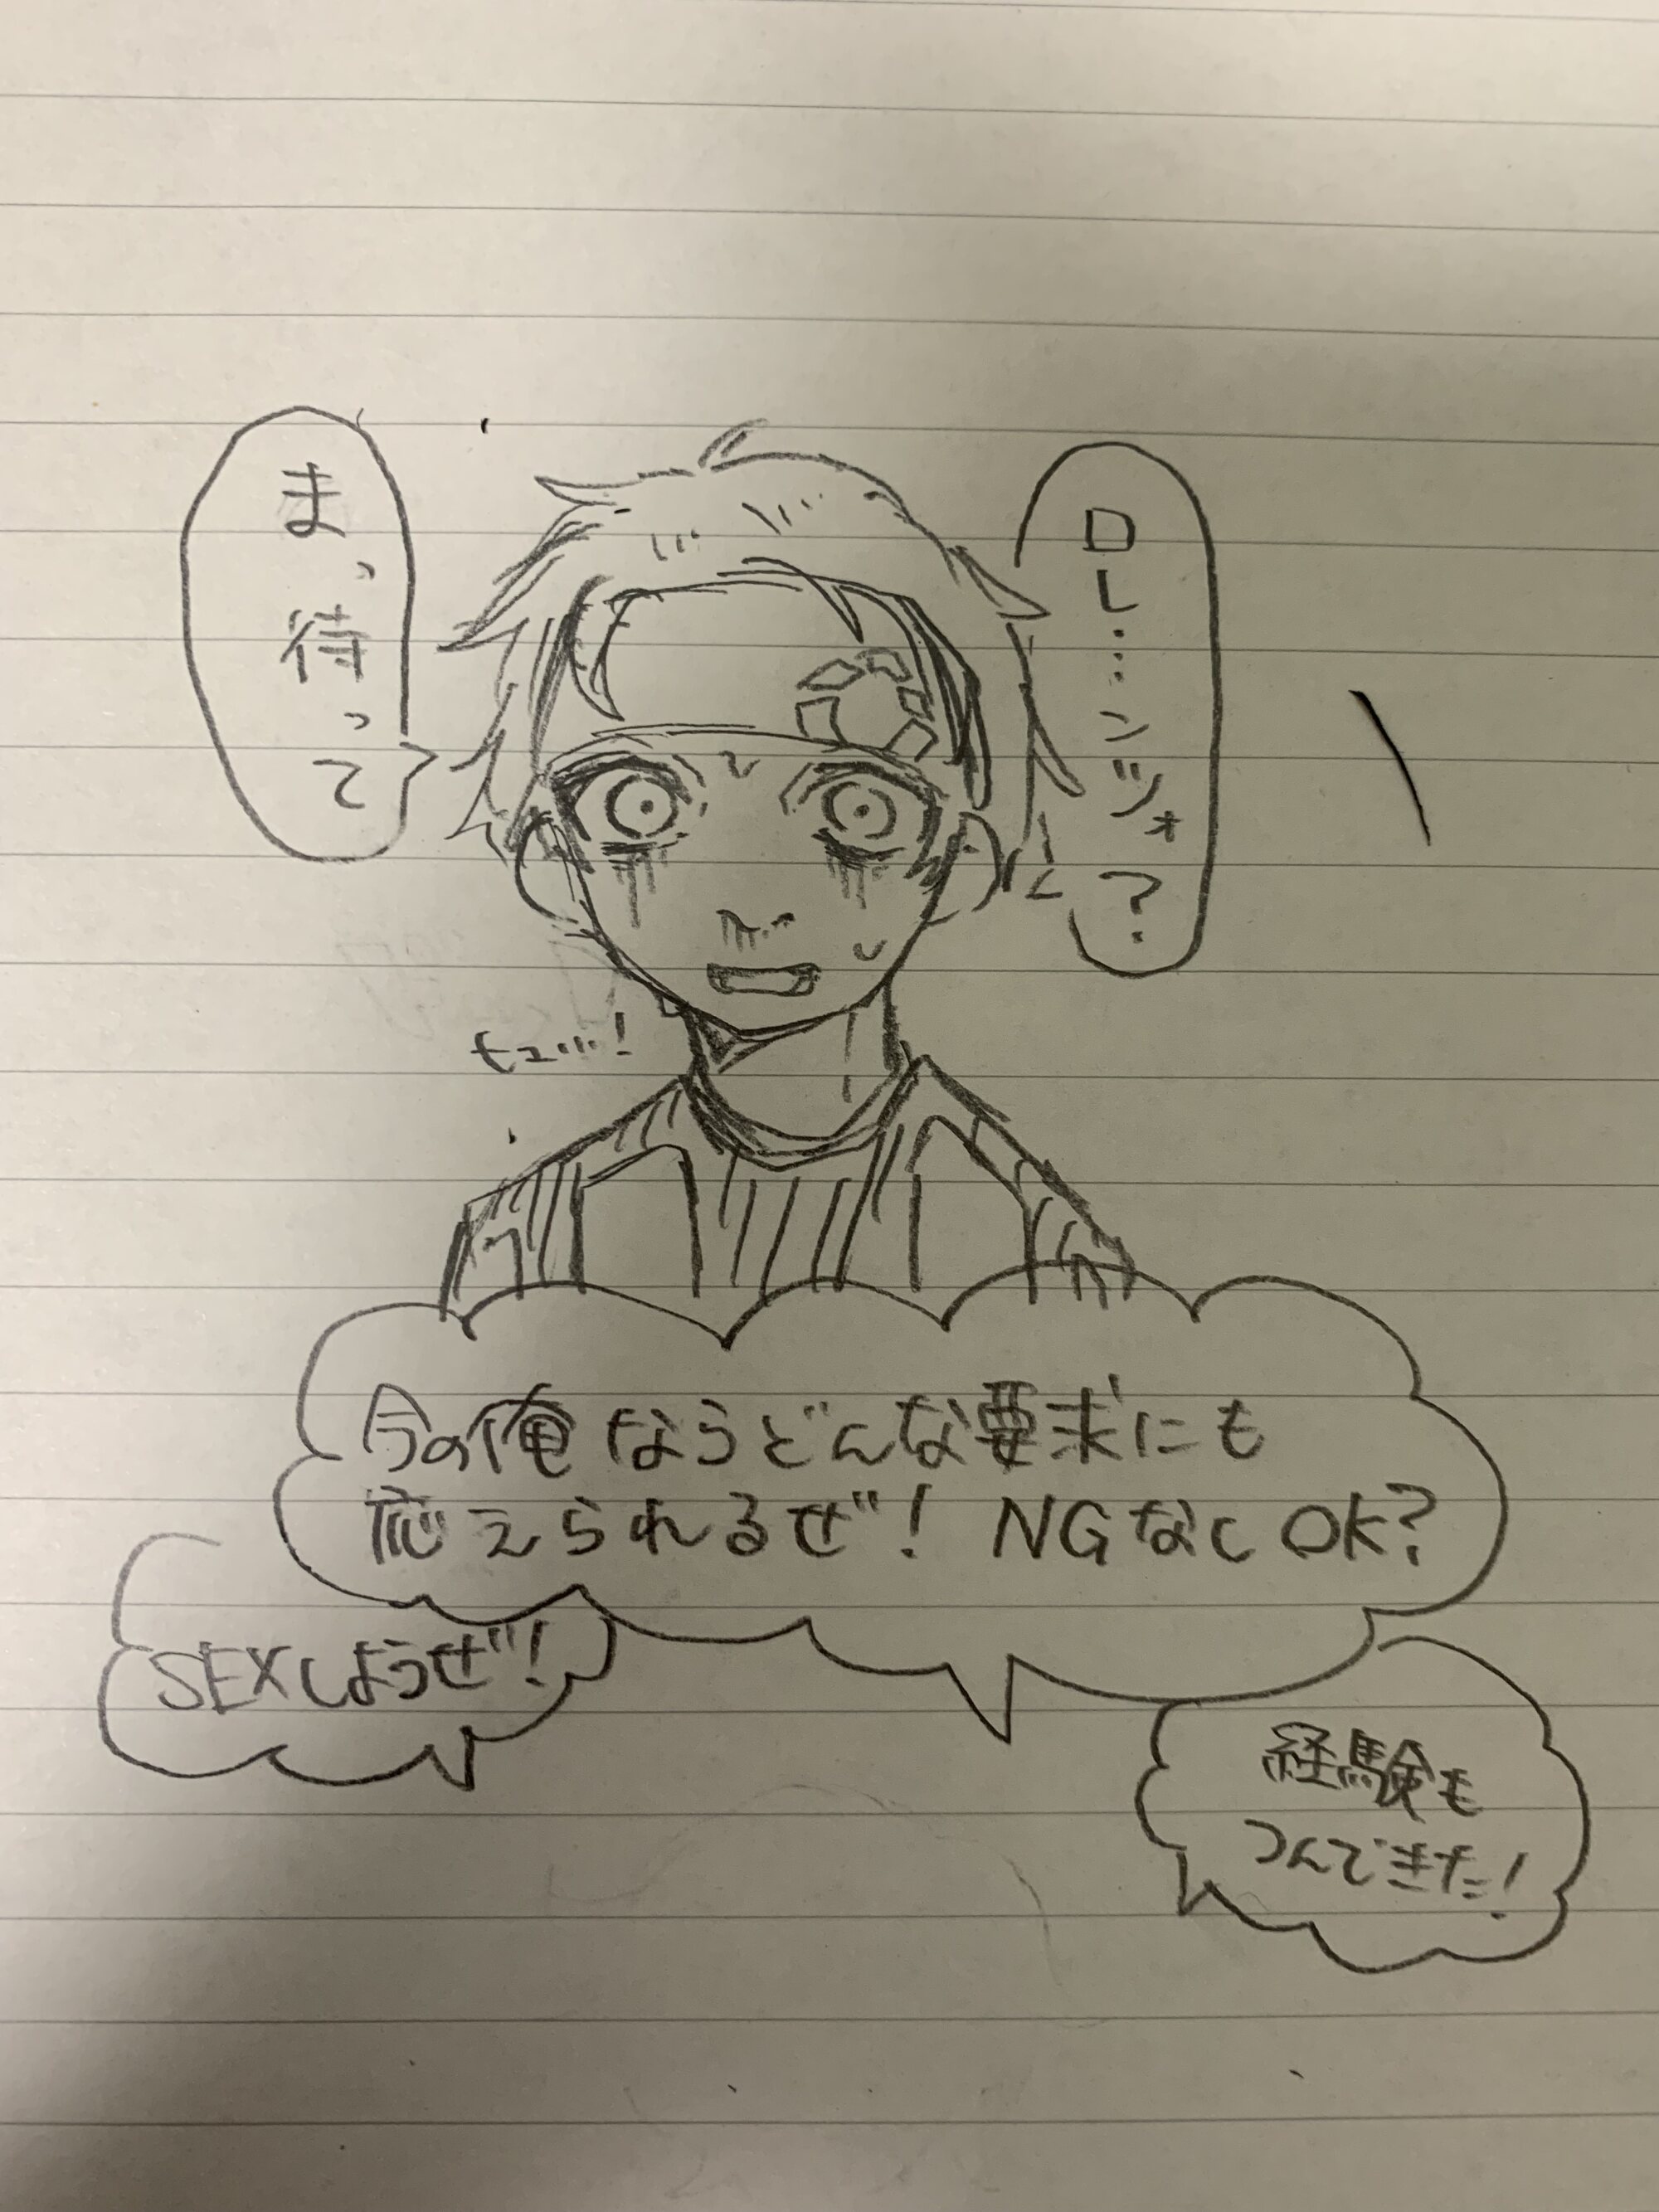 ロレ…ンツォ?
まっ待って
ヒュ…!
今の俺ならどんな要求にも
応えられるぜ!NGなしOK?
SEXしようぜ!
経験も
つんできた!